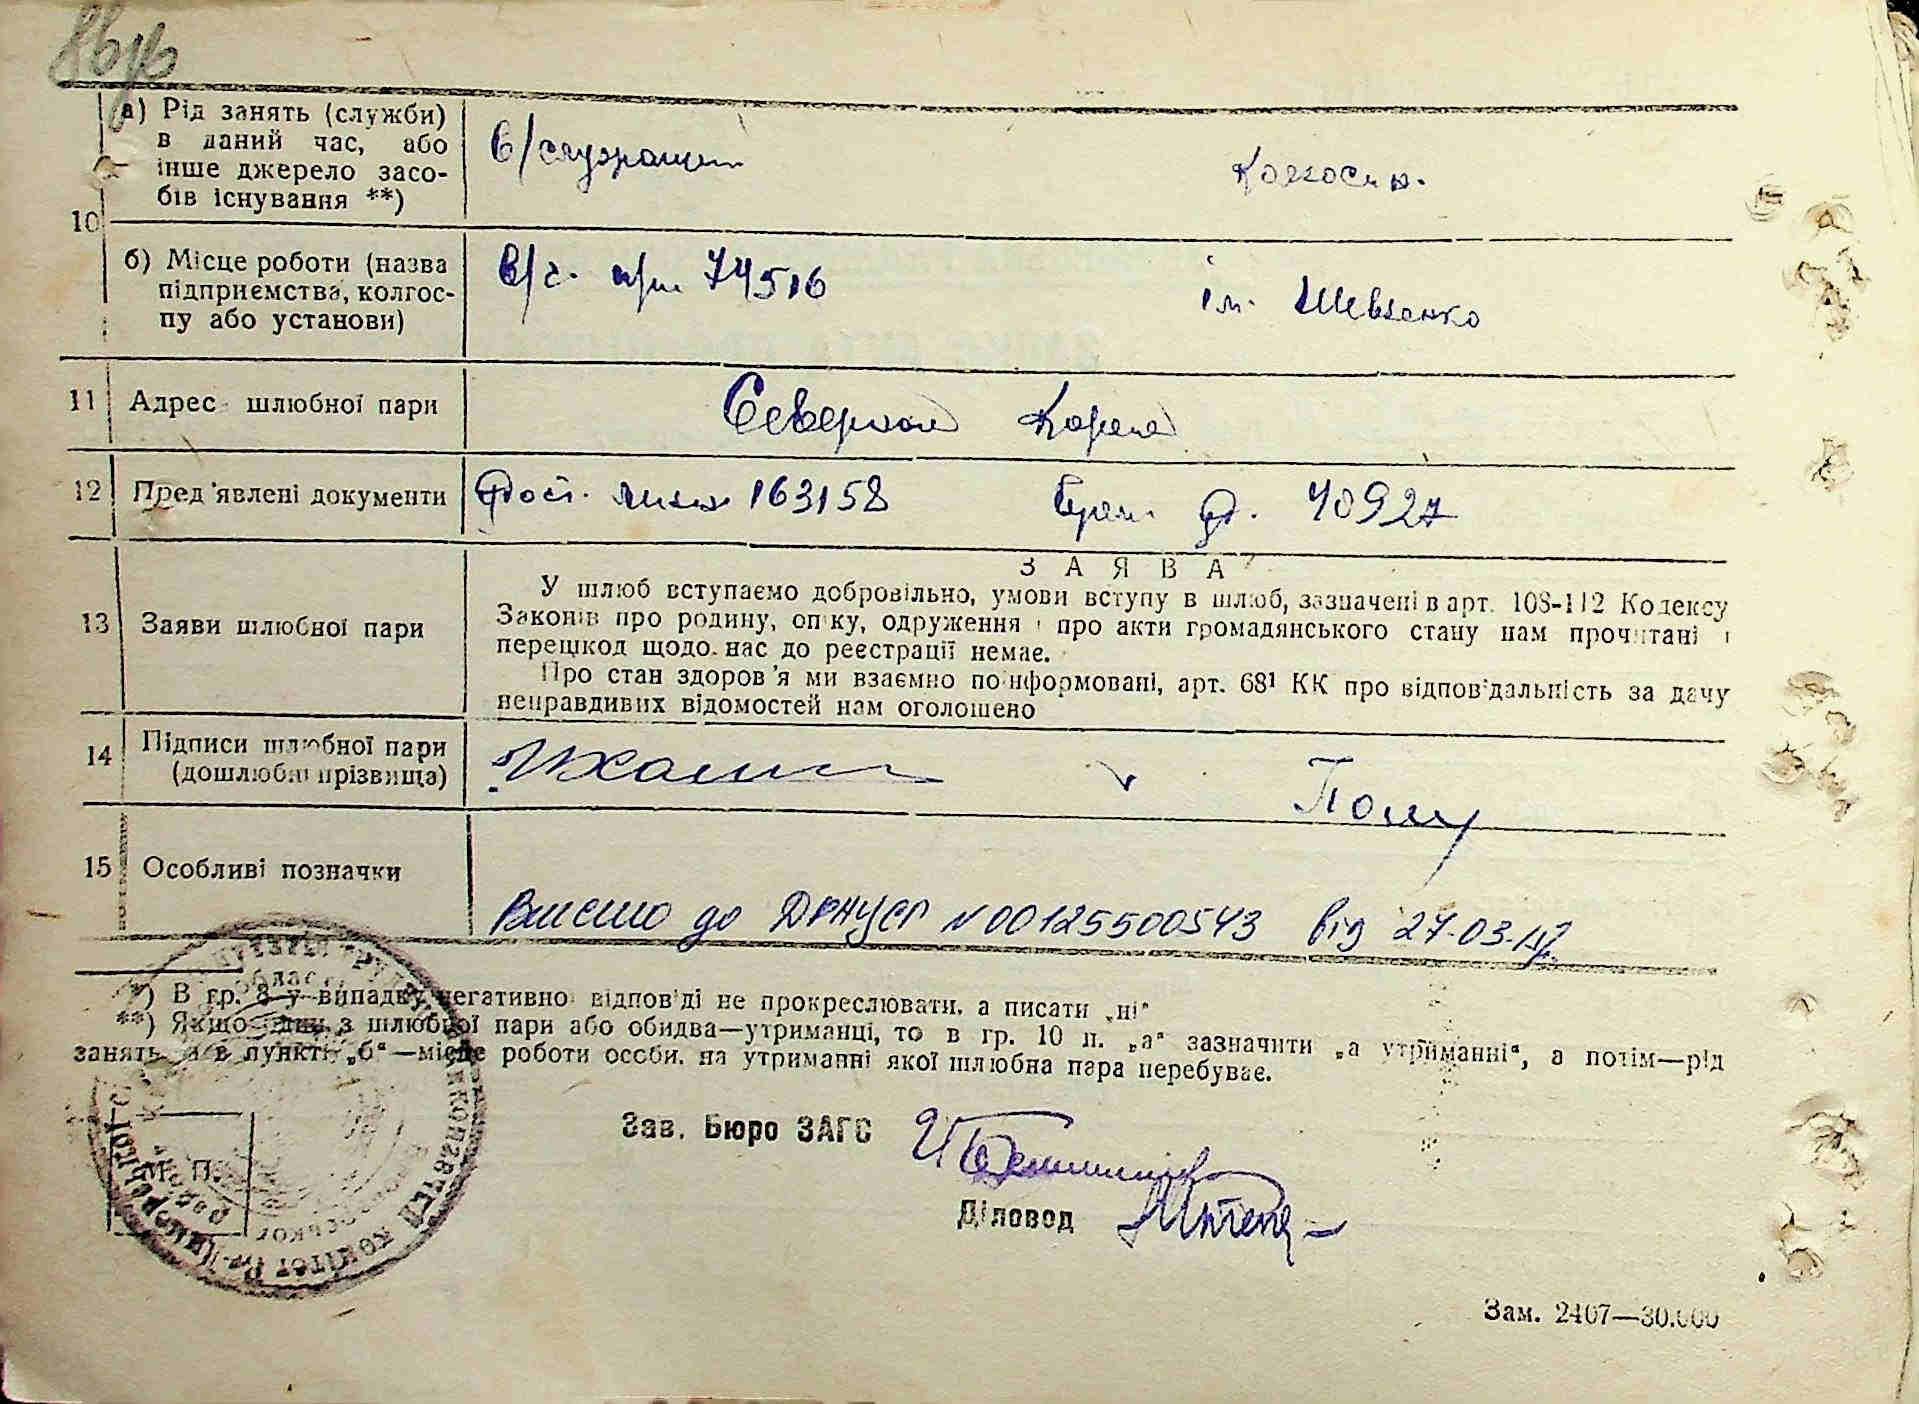 а) Рід занять (служби)
в даний час, або
інше джерело засо-
бів існування **)
в/служащий
Колхосп.
10
б) Місце роботи (назва
підприємства, колгос-
пу або установи)
в/ч. п/п. 74516
ім. Шевченко
11 Адрес шлюбної пари
Северная Корея
12 Пред'явлені документи
163158
40927
ЗАЯВА
13 Заяви шлюбної пари
У шлюб вступаємо добровільно, умови вступу в шлюб, зазначені в арт. 108-112 Кодексу
Законів про родину, опіку, одруження і про акти громадянського стану нам прочитані і
перешкод щодо нас до реєстрації немає.
Про стан здоров'я ми взаємно поінформовані, арт. 68¹ КК про відповідальність за дачу
неправдивих відомостей нам оголошено
14 Підписи шлюбної пари
(дошлюбні прізвища)
15 Особливі позначки
Внесено до ДРАЦСГ N 00125500543 від 27.03.12
*) В гр. 8 у випадку негативної відповіді не прокреслювати, а писати „ні"
**) Якщо один з шлюбної пари або обидва—утриманці, то в гр. 10 п. „а" зазначити „а утриманні", а потім—рід
занять, а в пункті „б"—місце роботи особи, на утриманні якої шлюбна пара перебуває.
Зав. Бюро ЗАГС
М. П.
Діловод
Зам. 2407—30.000